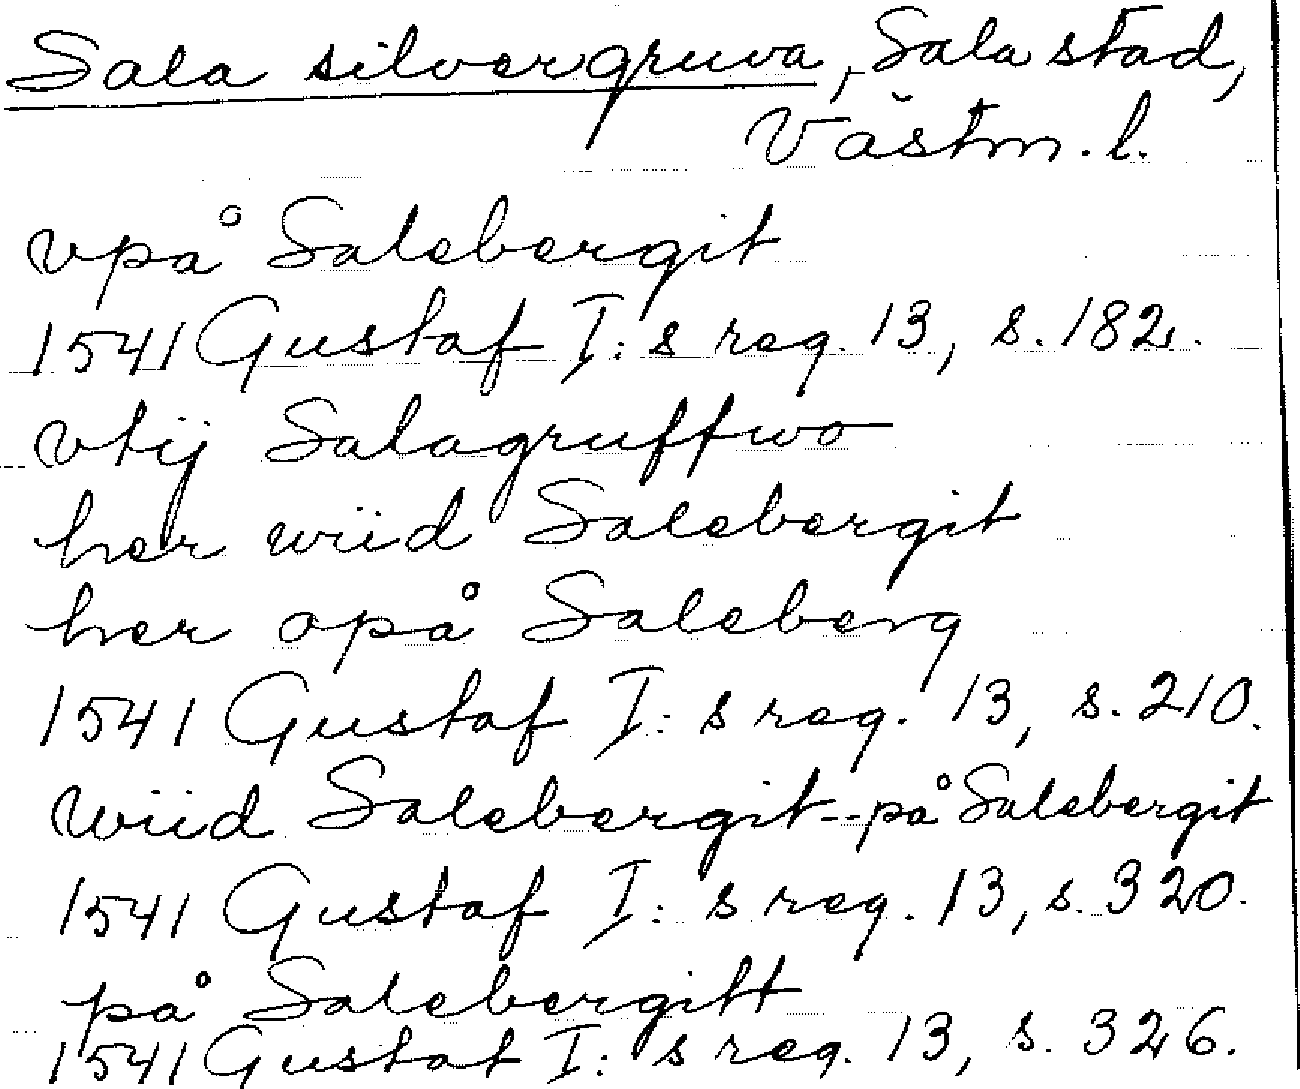 Sala silvergruva, Sala stad,
Västm. l.
vpå Salebergit
1541 Gustaf I:s reg. 13, s. 182.
vtij Salagruffwo
her wiid Salebergit
her opå Saleberg
1541 Gustaf I:s reg. 13, s. 210.
wiid Salebergit -- på Salebergit
1541 Gustaf I:s reg. 13, s. 320.
på Salebergitt
1541 Gustaf I:s reg. 13, s. 326.